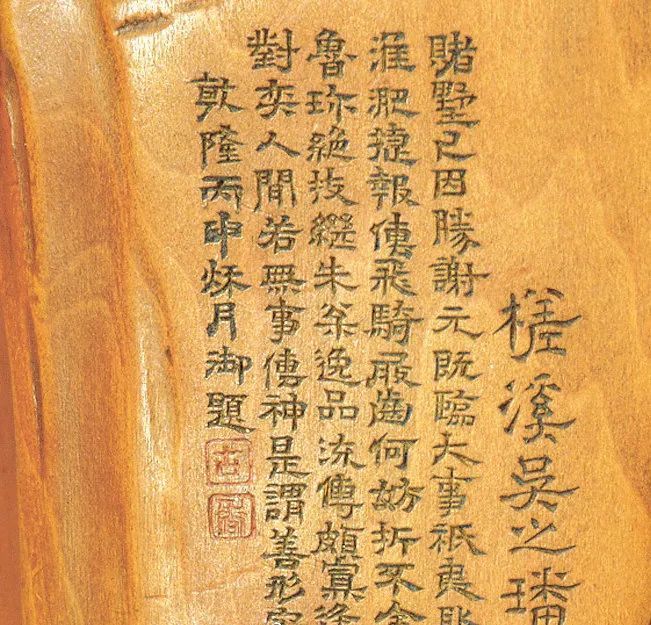 槎溪吳之璠
賭墅已因勝謝元既臨大事祇夷
淮淝捷報傳飛騎屐齒何妨折不
魯珍絕技繼朱翁逸品流傳頗
對奕人間若無事傳神是謂善形容
乾隆丙申秋月御題
古